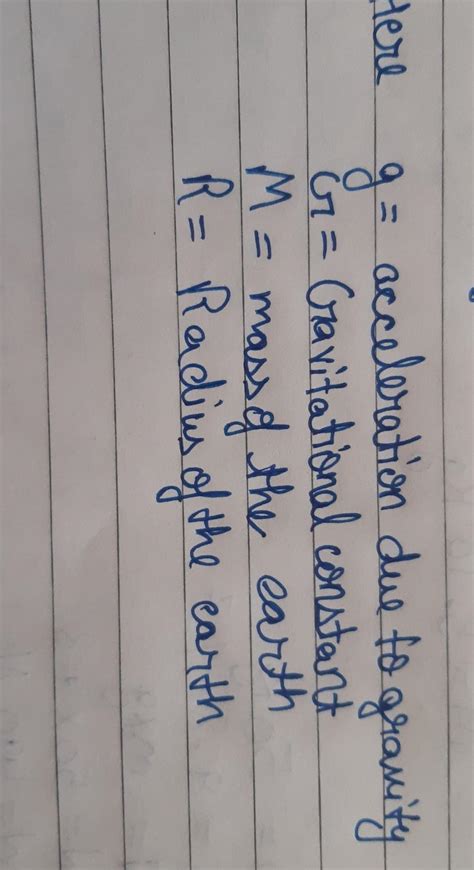 Here g = acceleration due to gravity
G = Gravitational constant
M = mass of the earth
R = Radius of the earth